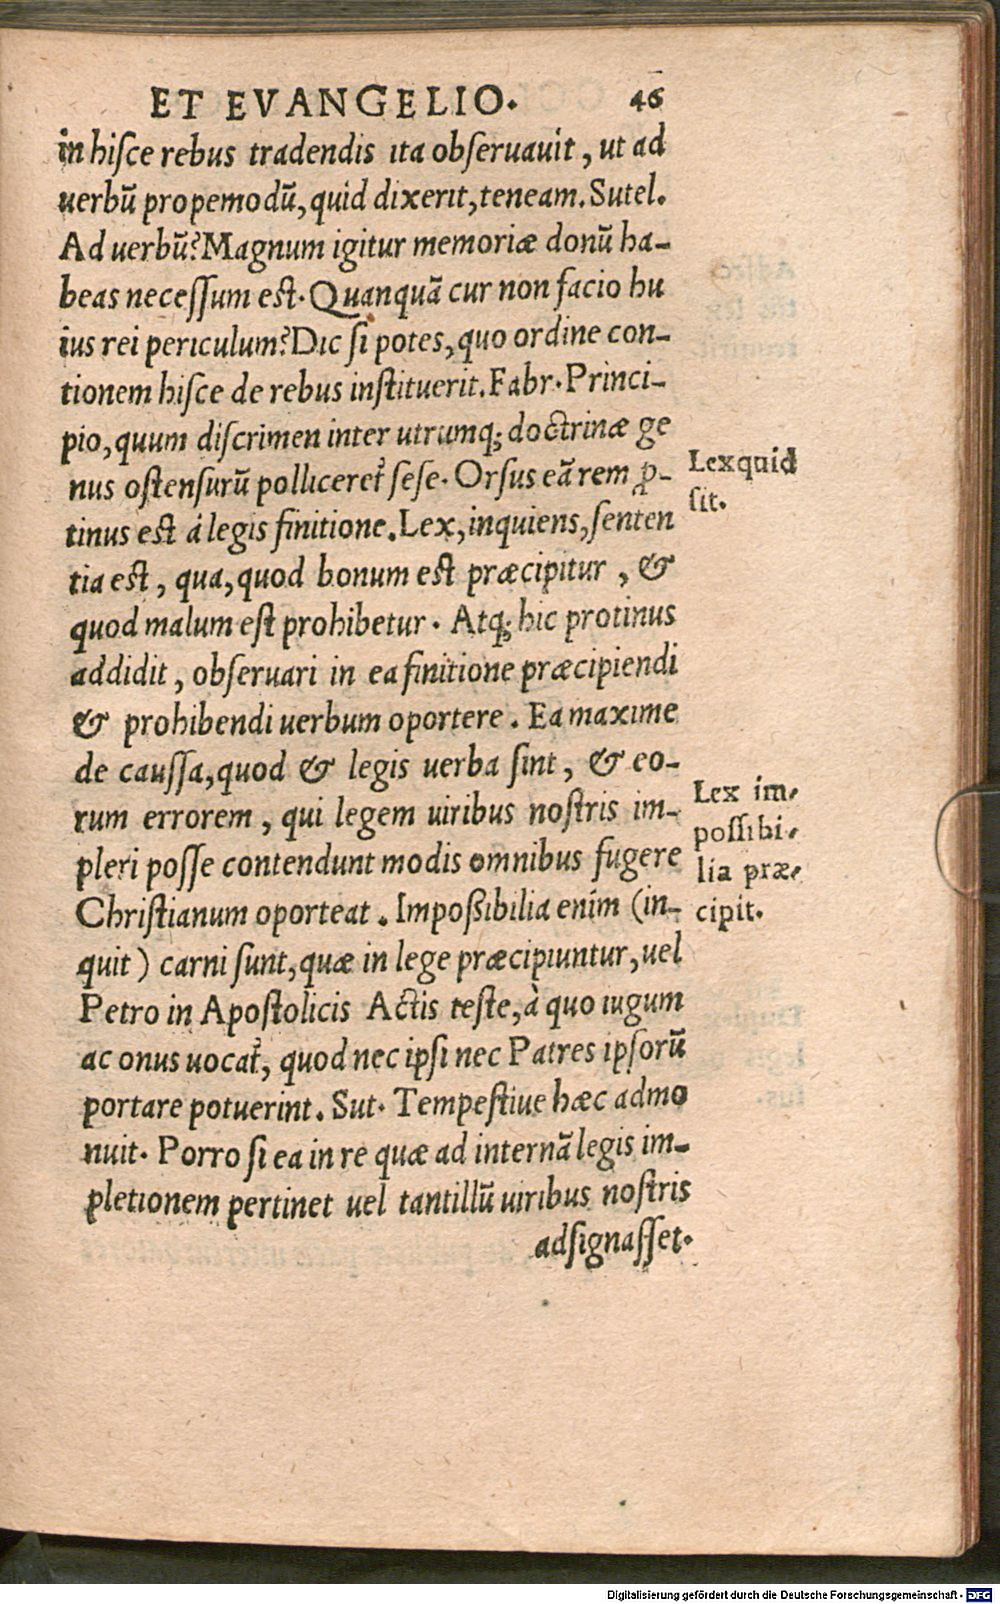 ET EVANGELIO. 46
in hiſce rebus tradendis ita obſeruauit, ut ad
uerbū propemodū, quid dixerit, teneam. Sutel.
Ad uerbū? Magnum igitur memoriæ donū ha-
beas neceſſum eſt. Quanquā cur non facio hu
ius rei periculum? Dic ſi potes, quo ordine con-
tionem hiſce de rebus inſtituerit. Fabr. Princi-
pio, quum diſcrimen inter utrumq; doctrinæ ge
nus oſtenſurū polliceret̄ ſeſe. Orſus eā rem ꝓ-
tinus eſt á legis finitione. Lex, inquiens, ſenten
tia eſt, qua, quod bonum eſt præcipitur, &
quod malum eſt prohibetur. Atq; hic protinus
addidit, obſeruari in ea finitione præcipiendi
& prohibendi uerbum oportere. Ea maxime
de cauſſa, quod & legis uerba ſint, & eo-
rum errorem, qui legem uiribus noſtris im-
pleri poſſe contendunt modis omnibus fugere
Chriſtianum oporteat. Impoßibilia enim (in-
quit) carni ſunt, quæ in lege præcipiuntur, uel
Petro in Apoſtolicis Actis teſte, à quo iugum
ac onus uocat̄, quod nec ipſi nec Patres ipſorū
portare potuerint. Sut. Tempeſtiue hæc admo
nuit. Porro ſi ea in re quæ ad internā legis im-
pletionem pertinet uel tantillū uiribus noſtris
adſignaſſet.
Lex quid
ſit.
Lex im-
poſſibi-
lia præ-
cipit.
Digitalisierung gefördert durch die Deutsche Forschungsgemeinschaft - DFG